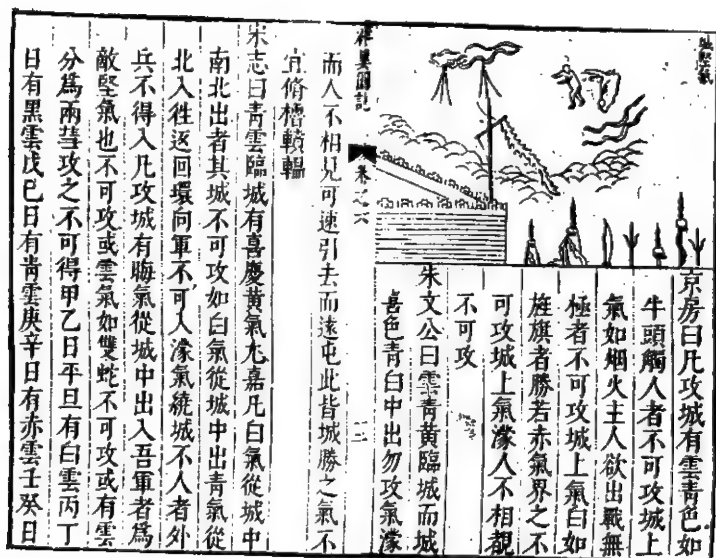 京房曰凡攻城有雲青色如
牛頭觸人者不可攻城上
氣如烟火主人欲出戰無
極者不可攻城上氣白如
旌旗者勝若赤氣界之不
可攻城上氣濛人不相覩
不可攻
朱文公曰雲青黃臨城而城
喜色青白中出勿攻氣濛
圖記
卷之六
而人不相見可速引去而遠屯此皆城勝之氣不
宜脩櫓轒轀
宋志曰青雲臨城有喜慶黃氣尤嘉凡白氣從城中
南北出者其城不可攻如白氣從城中出青氣從
北入徃返回環向軍不可入濛氣繞城不入者外
兵不得入凡攻城有晦氣從城中出入吾軍者爲
敵堅氣也不可攻或雲氣如雙蛇不可攻或有雲
分爲兩彗攻之不可得甲乙日平旦有白雲丙丁
日有黑雲戊巳日有青雲庚辛日有赤雲壬癸日